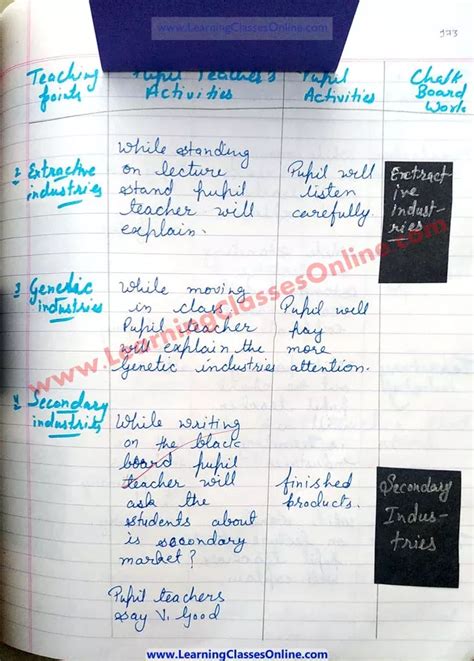 www.LearningClassesOnline.com
173
Teaching Points
Pupil Teacher's Activities
Pupil Activities
Chalk Board Work
Extractive industries
While standing
on lecture
stand pupil
teacher will
explain.
Pupil will
listen
carefully.
Extract-
ive
Indust-
ries
3 Genetic
industries
While moving
in class
Pupil teacher
will explain the
Genetic industries
Pupil will
pay
more
attention.
www.LearningClassesOnline.com
4 Secondary
industries
While writing
on the black
board pupil
teacher will
ask the
students about
is secondary
market?
finished
products.
Secondary
Indus-
tries
Pupil teachers
say V. Good
www.LearningClassesOnline.com